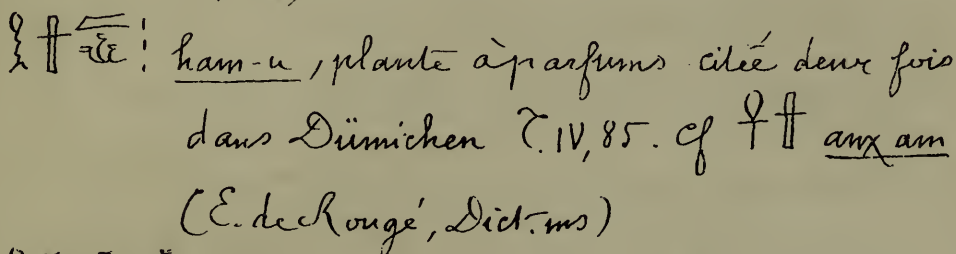 ham-u, plante à parfums citée deux fois
dans Dümichen T. IV, 85. cf 𓋹𓇩 anχ am
(E. de Rougé, Dict. ms)